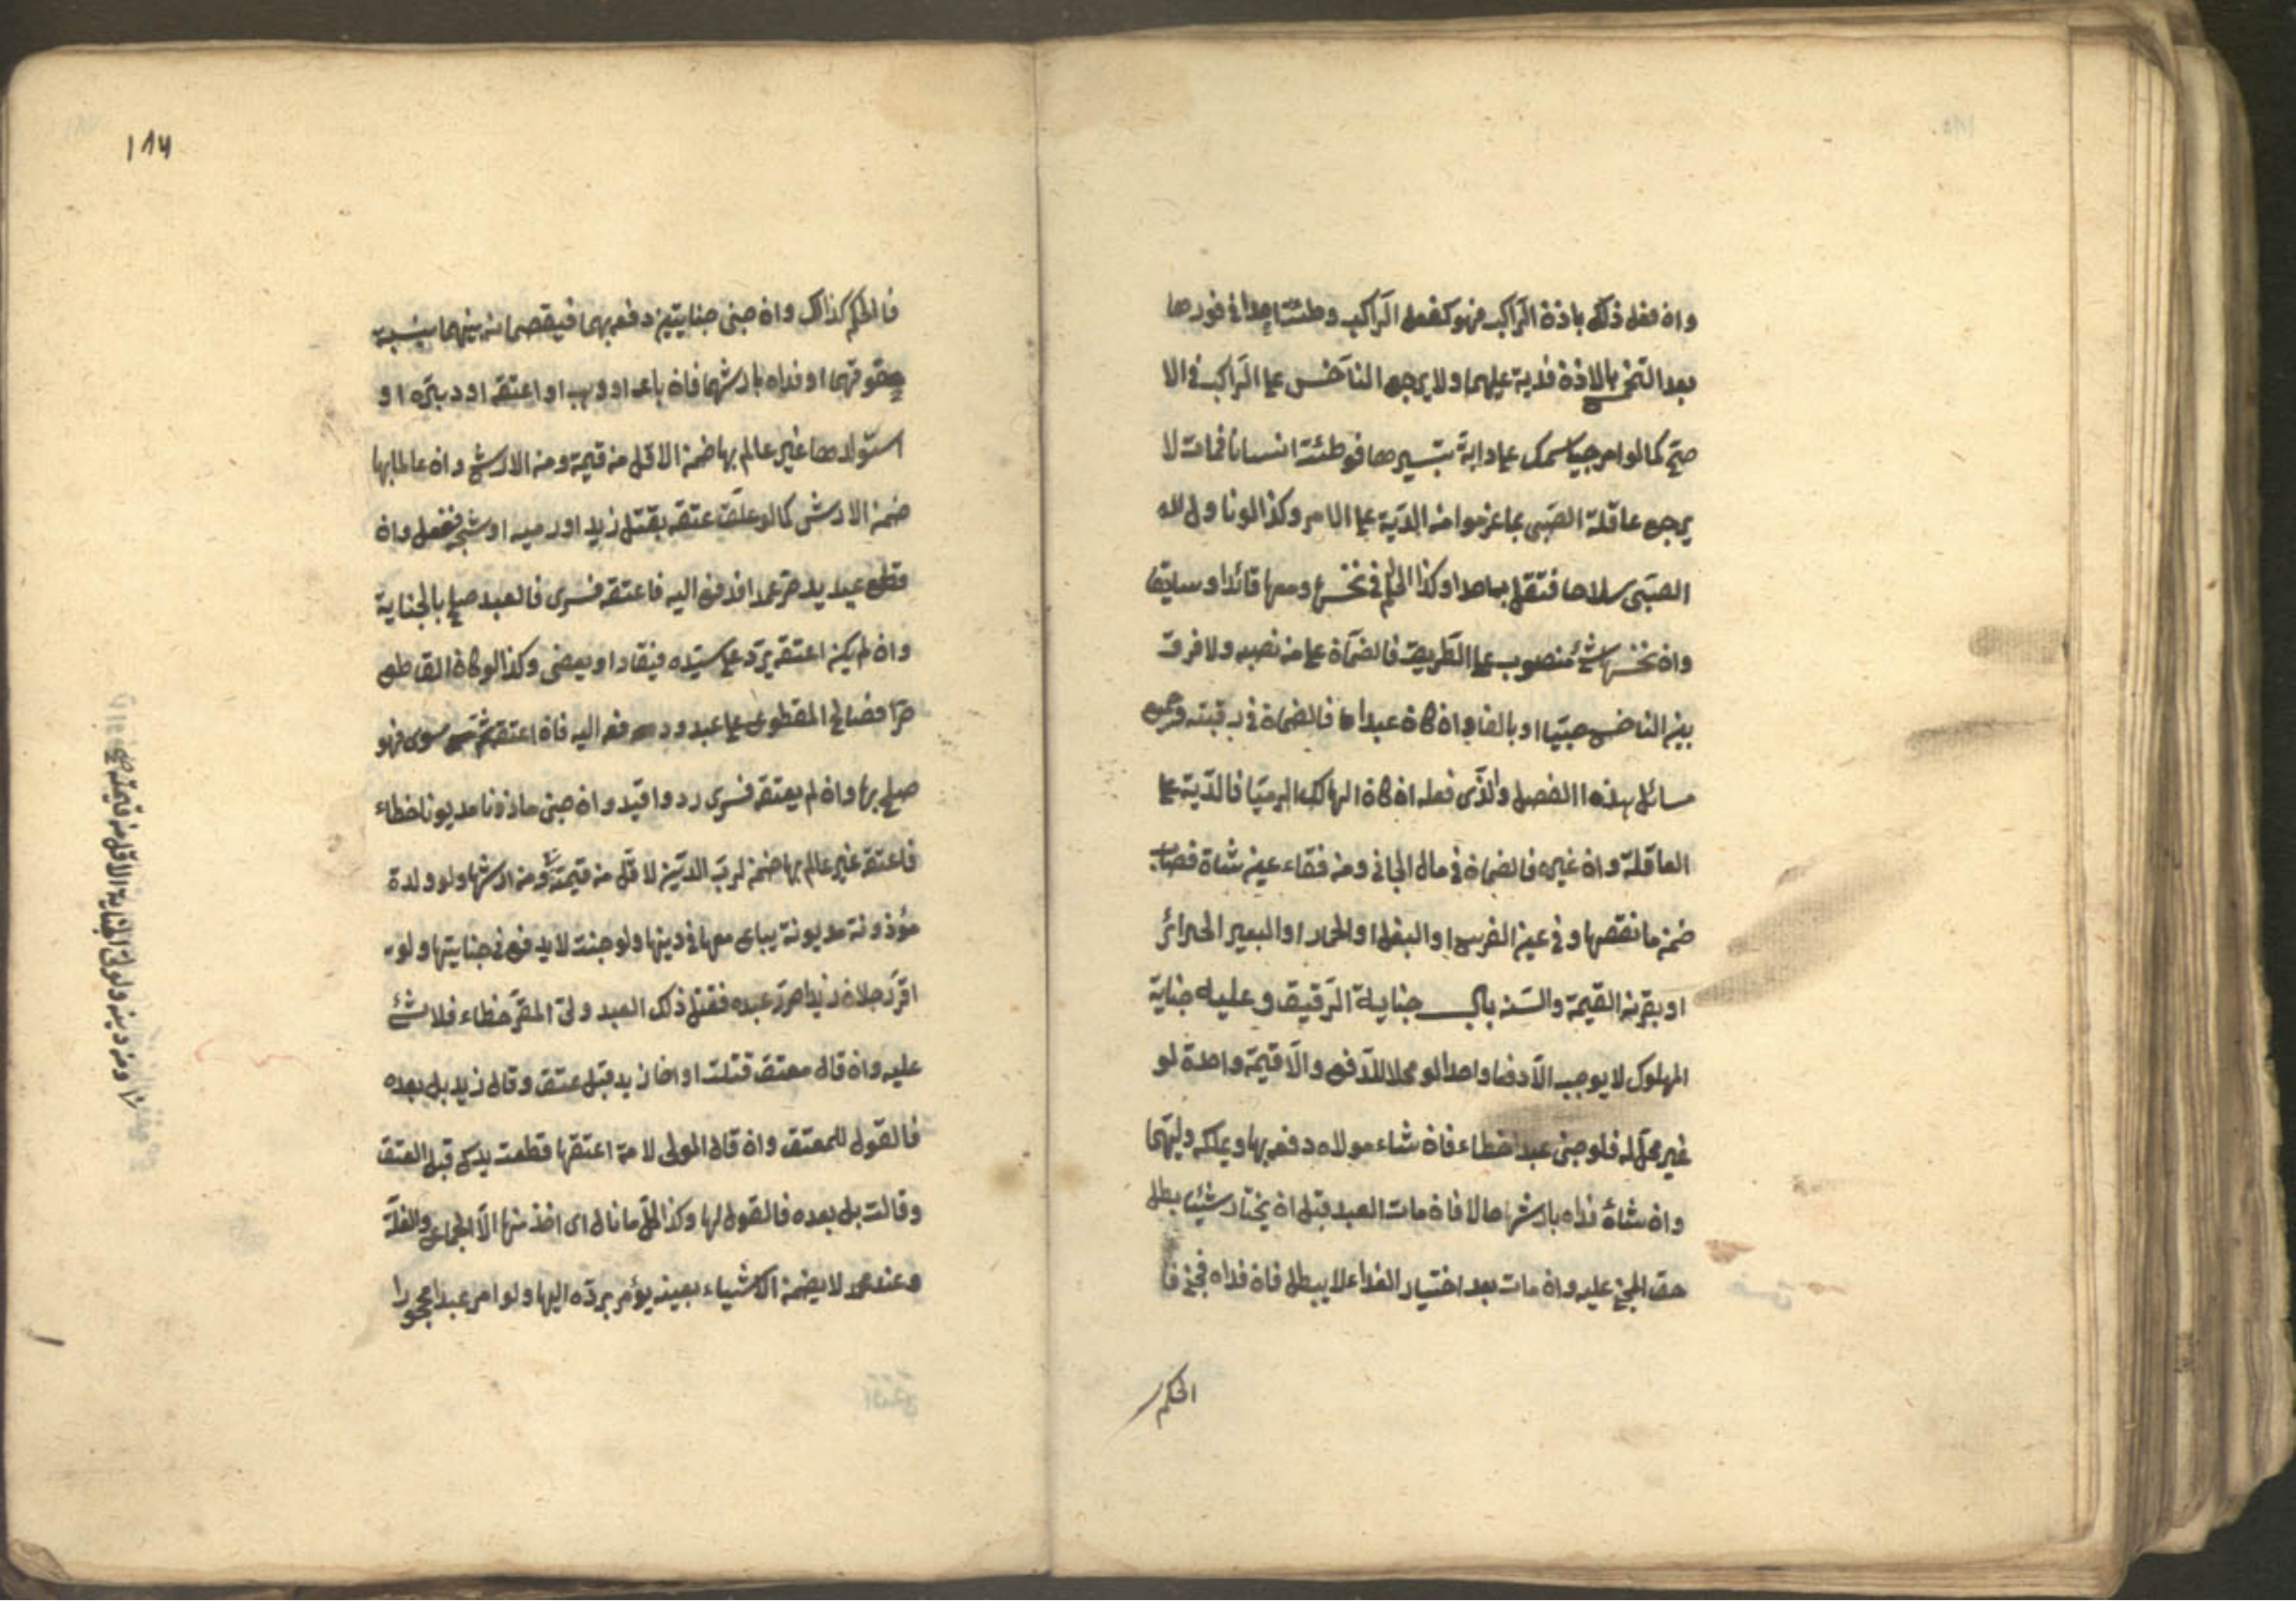 وان فعل ذلك باذن الراكب فهو كفعل الراكب وطئت احدا في فورها
بعد النخس بالاذن فدية عليهما ولا يرجع الناخس على الراكب في الا
صح كما لو امر صبيا يستمسك على دابة بتسييرها فوطئت انسانا فمات لا
يرجع عاقلة الصبي بما غرموا من الدية على الامر وكذا لو ناوله
الصبي سلاحا فقتل به احدا وكذا الحكم في نخسها ومعها قائد او سايق
وان نخسها شئ منصوب على الطريق فالضمان على من نصبه ولا فرق
بين الناخس صبيا او بالغا وان كان عبدا فالضمان في رقبته وجميع
مسائل هذا الفصل والذي قبله ان كان الهالك ادميا فالدية على
العاقلة وان غيره فالضمان في مال الجاني ومن فقاء عين شاة قصاب
ضمن ما نقصها وفي عين الفرس او البغل او الحمار او البعير الجزائر
او بقرته القيمة والسنة باب جناية الرقيق وعليه جناية
المملوك لا يوجب الا دفعا واحدا لو محلا للدفع والا قيمة واحدة لو
غير محل له فلو جنى عبد خطاء فان شاء مولاه دفعه بها ويملكه وليها
وان شاء فداه بارشها حالا فان مات العبد قبل ان يختار شيئا بطل
حق المجني عليه وان مات بعد اختيار الفداء لا يبطل فان فداه فجنى فا
الحكم
١٨٦
فالحكم كذلك وان جنى جنايتين دفعه بهما فيقتسمانه بينهما بنسبة
حقوقهما او فداه بارشهما فان باعه او وهبه او اعتقه او دبره او
استولدها غير عالم بها ضمن الاقل من قيمته ومن الارش وان عالما بها
ضمن الارش كما لو علق عتقه بقتل زيد او رميه او شجه ففعل وان
قطع عبد يد حر عمدا فدفع اليه فاعتقه فسرى فالعبد صلح بالجناية
وان لم يكن اعتقه يرد على سيده فيقاد او يعفى وكذا لو كان القاطع
حرا فصالح المقطوع على عبد ودفعه اليه فان اعتقه ثم سرى فهو
صلح بها وان لم يعتقه فسرى رد واقيد وان جنى ماذونا مديونا خطاء
فاعتقه غير عالم بها ضمن لرب الدين لاقل من قيمته ومن ارشها ولو ولدة
مؤذونة مديونة يباع معها في دينها ولو جنت لا يدفع في جنايتها ولو
اقر رجلان زيدا حرر عبده فقتل ذلك العبد ولي المقر خطاء فلا شئ
عليه وان قال معتق قتلت اخا زيد قبل عتقي وقال زيد بل بعده
فالقول للمعتق وان قال المولى لامة اعتقها قطعت يدك قبل العتق
وقالت بل بعده فالقول لها وكذا كل ما نال اي اخذ منها الا الجماع والغلة
وعند محمد لا يضمن الا شياء بعينه يؤمر برده اليها ولو امر عبد محجورا